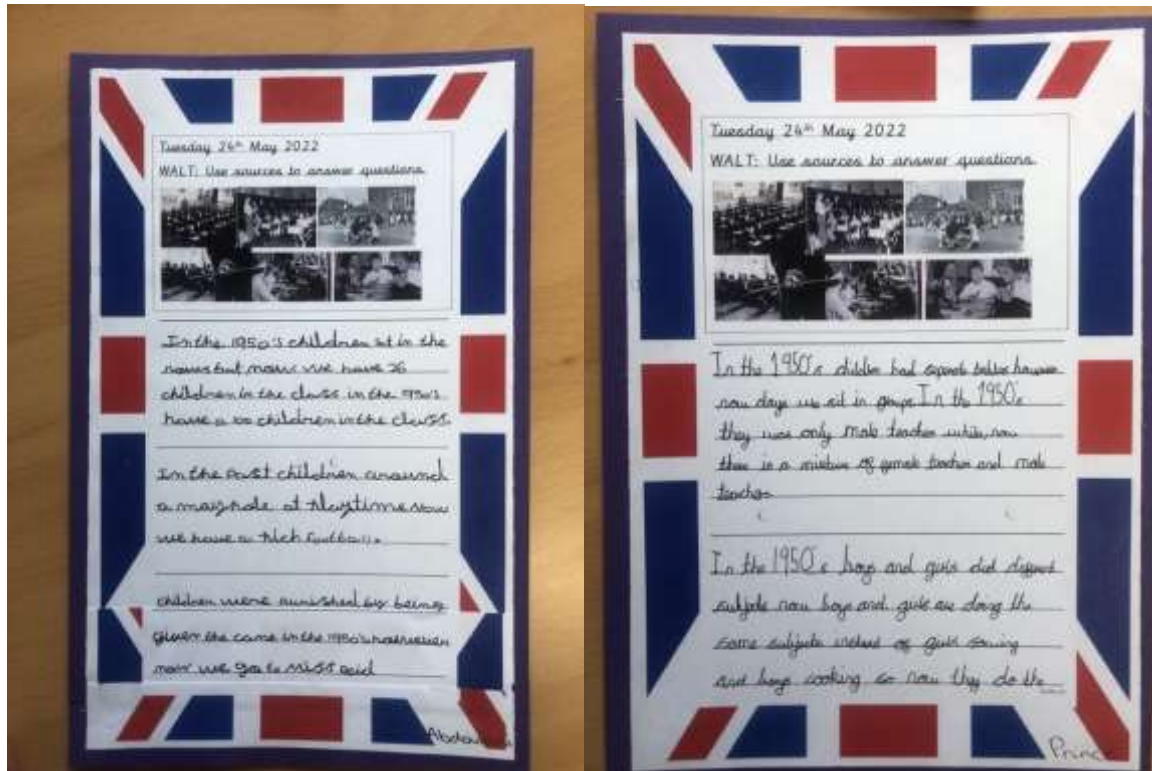 Tuesday 24th May 2022
WALT: Use sources to answer questions.
In the 1950's children sit in the
rows but now we have 26
children in the class in the 1950's
have a 100 children in the class.
In the Past children around
a maypole at Playtime now
we have a Pich football.
children were punished by being
given the cane in the 1950's
now we go to Miss
Tuesday 24th May 2022
WALT: Use sources to answer questions.
In the 1950's children had however
now days we sit in groups In the 1950's
they was only male teacher while now
there is a mixture of female teacher and male
teacher
In the 1950's boys and girls did
now boys and girls are doing the
same subjects instead of girls sewing
and boys cooking so now they do the
Prince